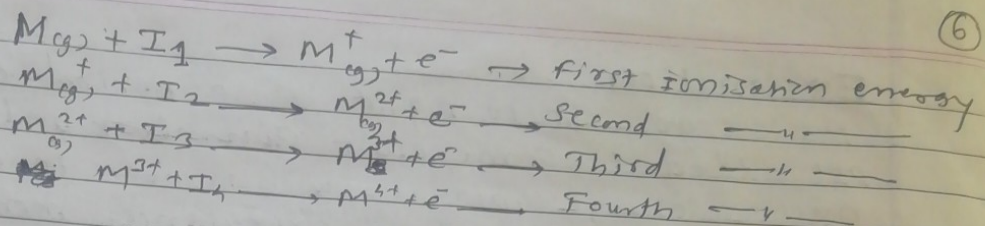 6
M(g) + I1 → M+(g) + e- → First Ionisation energy
M+(g) + I2 → M2+(g) + e- → Second —〃—
M2+(g) + I3 → M3+ + e- → Third —〃—
M3+ + I4 → M4+ + e- — Fourth —〃—